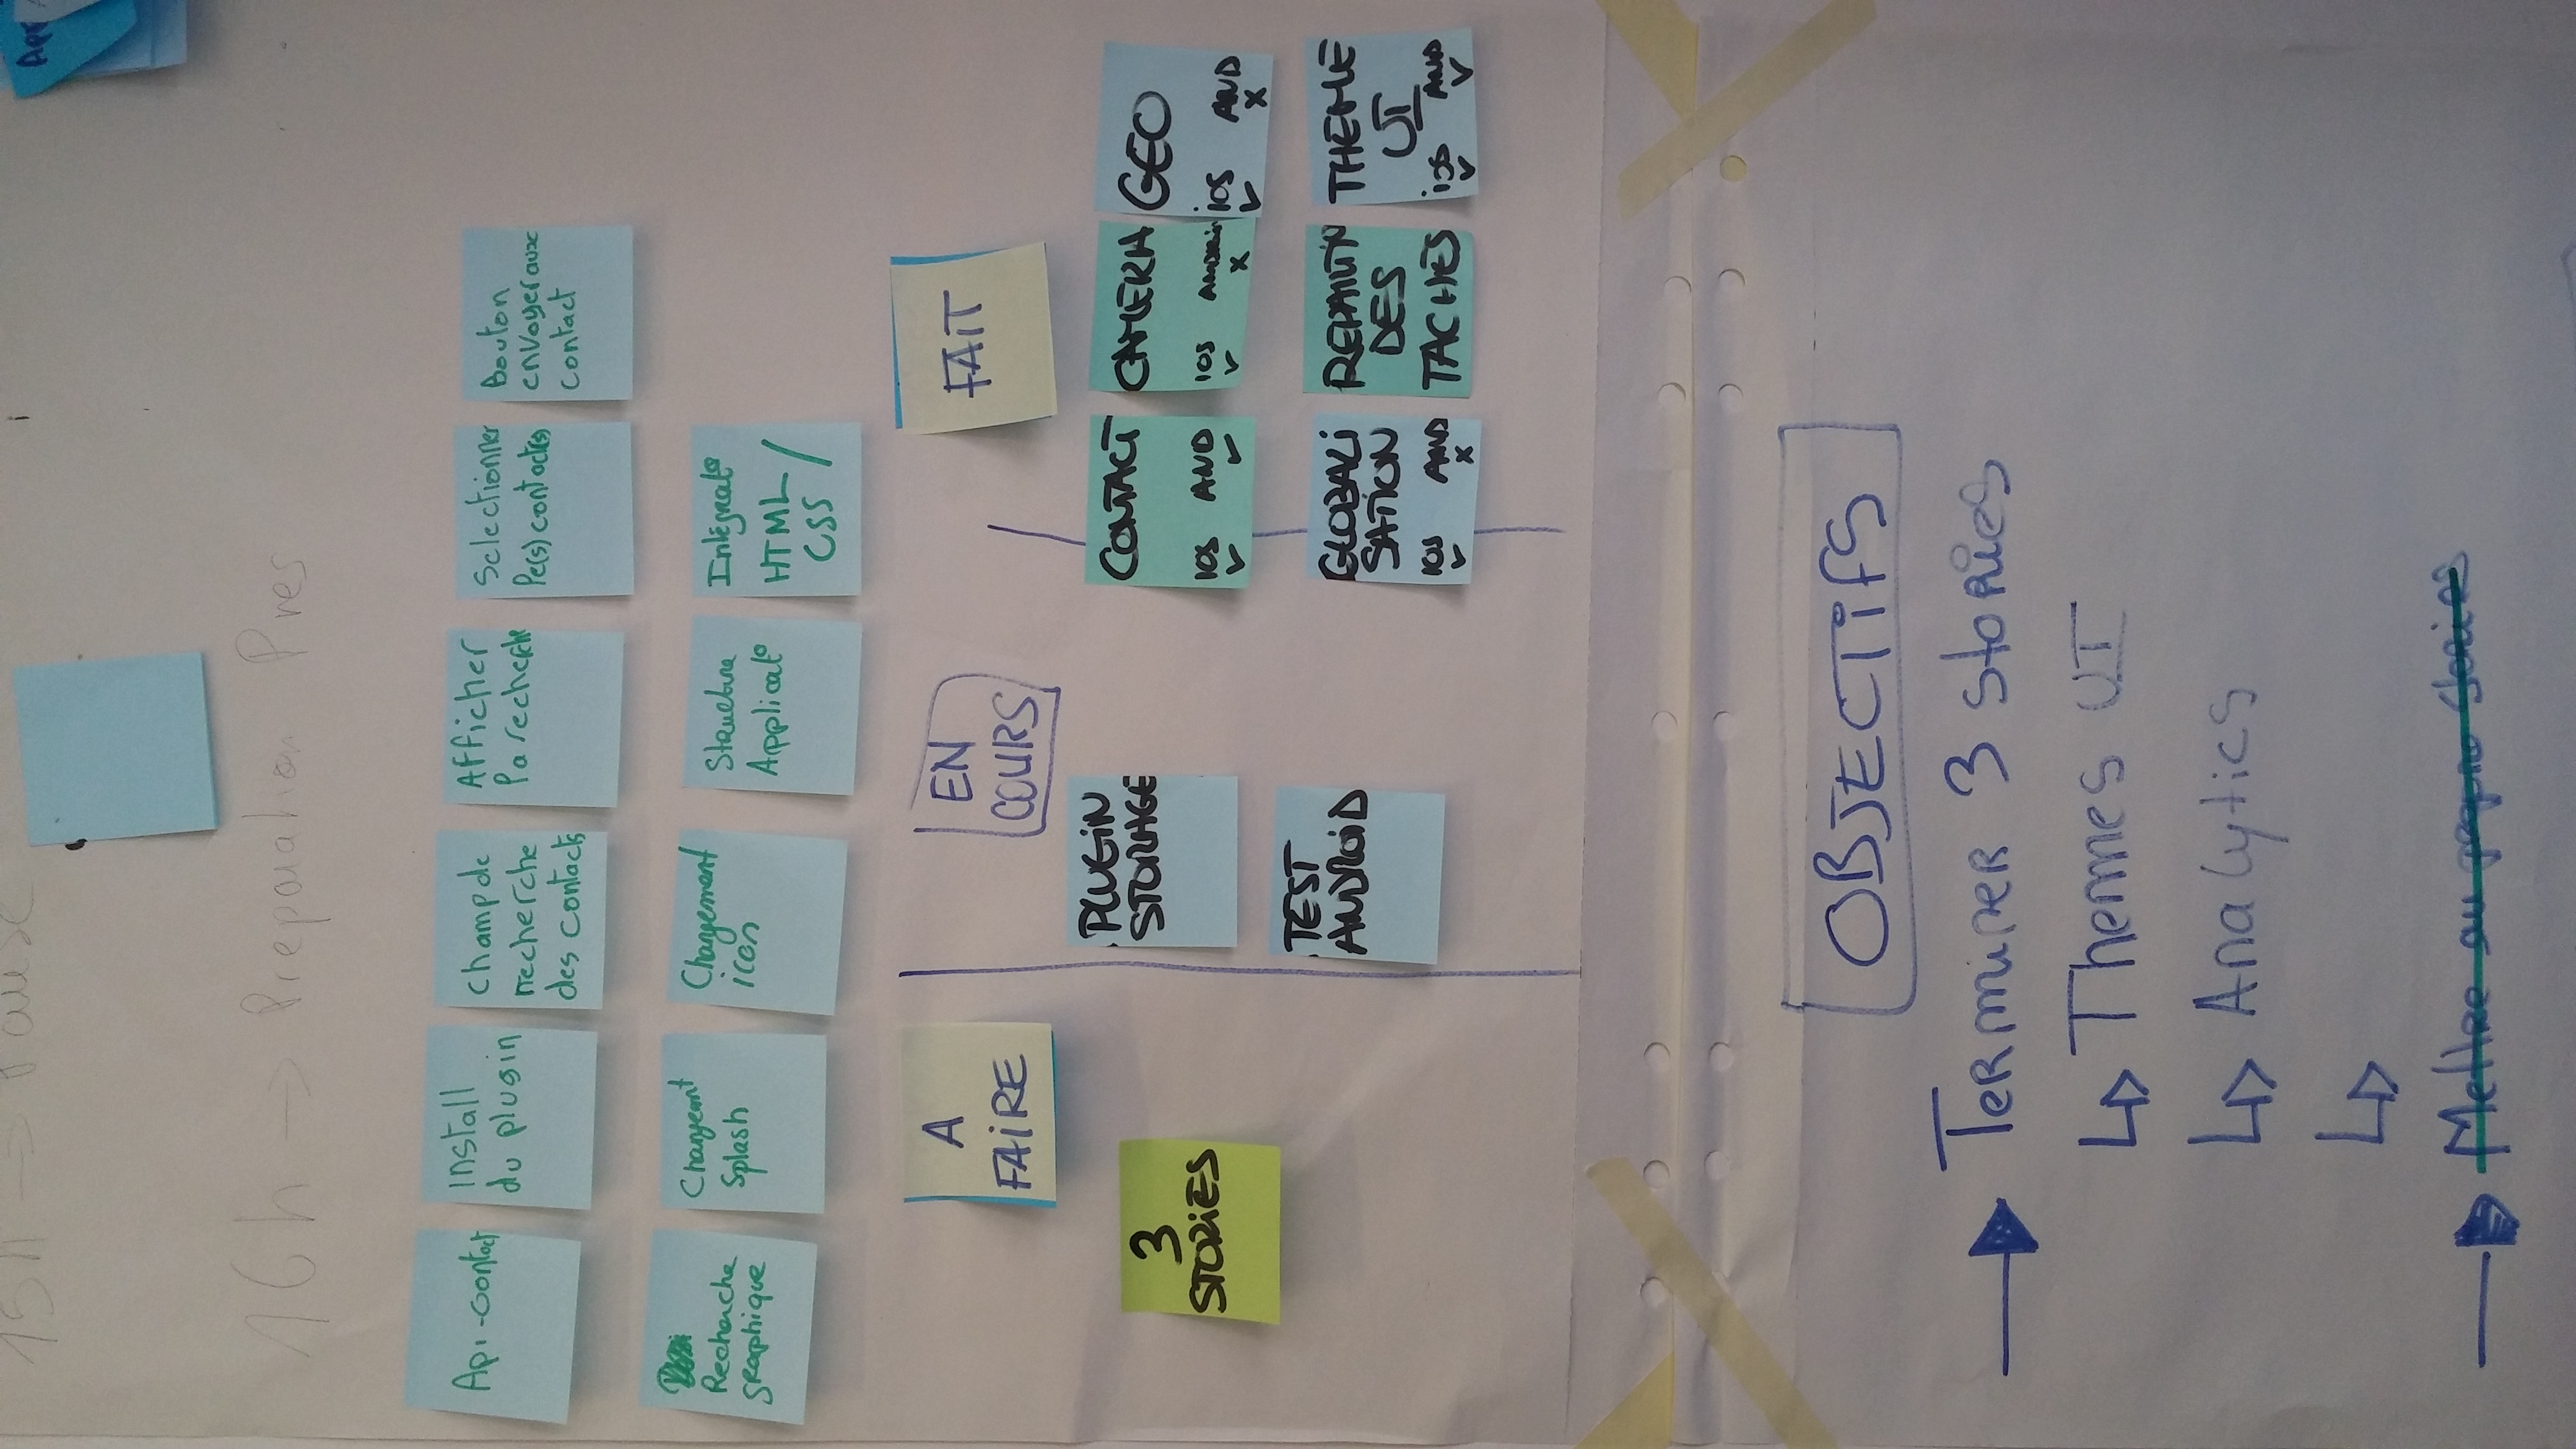 15h → Pause
App
16h → Preparation Pres
Api-contact
Install
du plugin
champ de
recherche
des contacts
Afficher
la recherche
Selectionner
le(s) contact(s)
Bouton
envoyer aux
contact
Recherche
graphique
Changemt
Splash
Changement
icon
Structure
Applicat°
Intégrat°
HTML /
CSS
A
FAIRE
EN
COURS
FAIT
3
STORIES
PLUGIN
STORAGE
TEST
ANDROID
CONTACT
IOS AND
✓ ✓
CAMERA
IOS Android
✓ x
GEO
iOS AND
✓ x
GLOBALI
SATION
IOS AND
✓ x
REPARTITN
DES
TACHES
THEME
UI
iOS AND
✓ ✓
OBJECTIFS
→ Terminer 3 stories
↳ Themes UI
↳ Analytics
↳
→ Mettre au propre stories